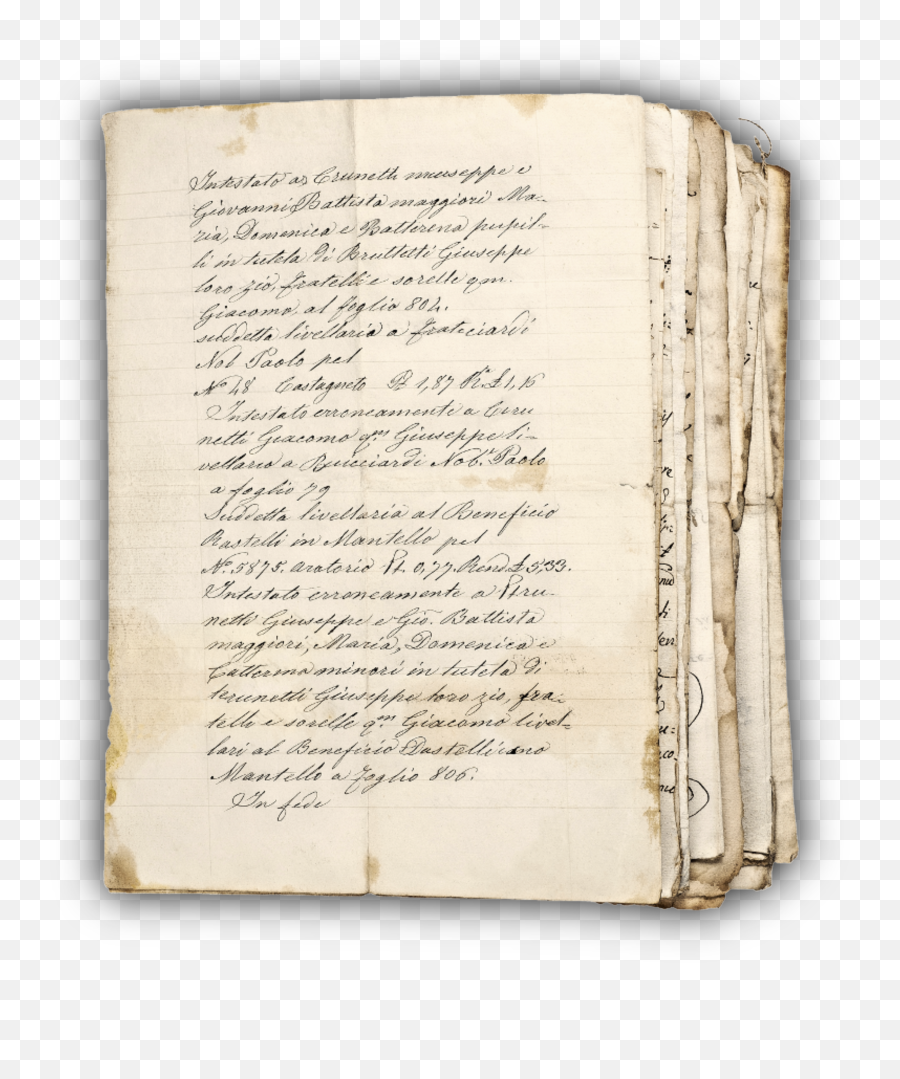 Intestato a Crunetti Giuseppe e
Giovanni Battista maggiori Ma-
ria, Domenica e Catterina pupil-
li in tutela di Bruttetti Giuseppe
loro zio, fratelli e sorelle qm.
Giacomo, al foglio 804.
suddetta livellaria a
Nob Paolo pel
No 48 Castagneto Pt 1,87 Rt £ 1,16
Intestato erroneamente a Cru
netti Giacomo qm Giuseppe li-
vellario a Buicciardi Nobe Paolo
a foglio 79
Suddetta livellaria al Beneficio
Rastelli in Mantello pel
No. 5875. aratorio Pt. 0,77. Rend. £ 5,33.
Intestato erroneamente a Pru-
netti Giuseppe e Gio. Battista
maggiori, Maria, Domenica e
Catterina minori in tutela di
Giuseppe loro zio, fra-
telli e sorelle qm Giacomo livel-
lari al Beneficio
Mantello a foglio 806.
In fede